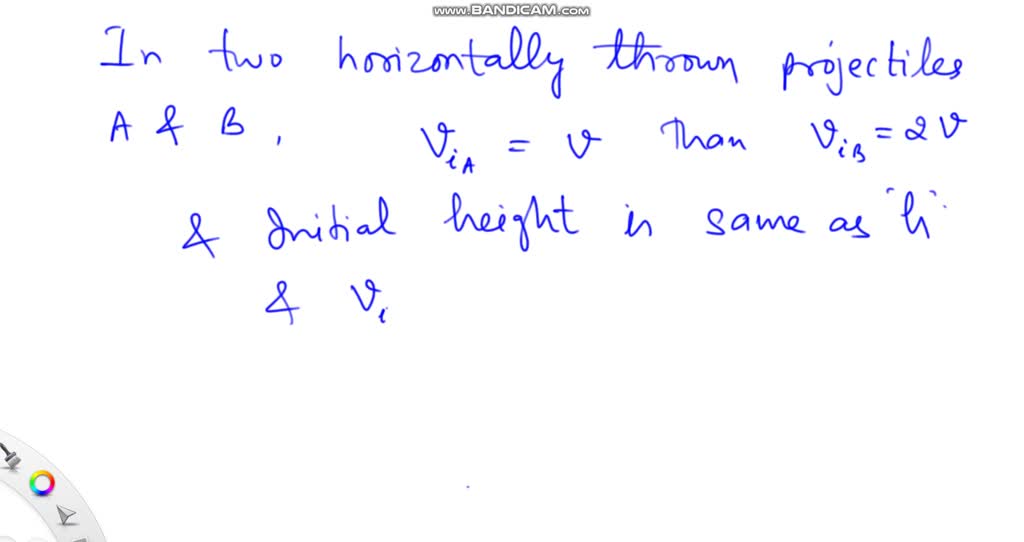 www.BANDICAM.com
In two horizontally thrown projectiles
A & B, v_iA = v Than v_iB = 2v
& Initial height is same as "h"
& v_i